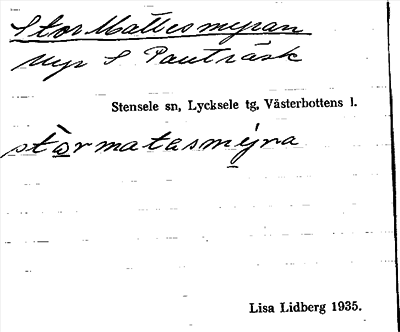 Stor Mattesmyran
Myr S Pauträsk
Stensele sn, Lycksele tg, Västerbottens l.
stòrmatesmýra
Lisa Lidberg 1935.